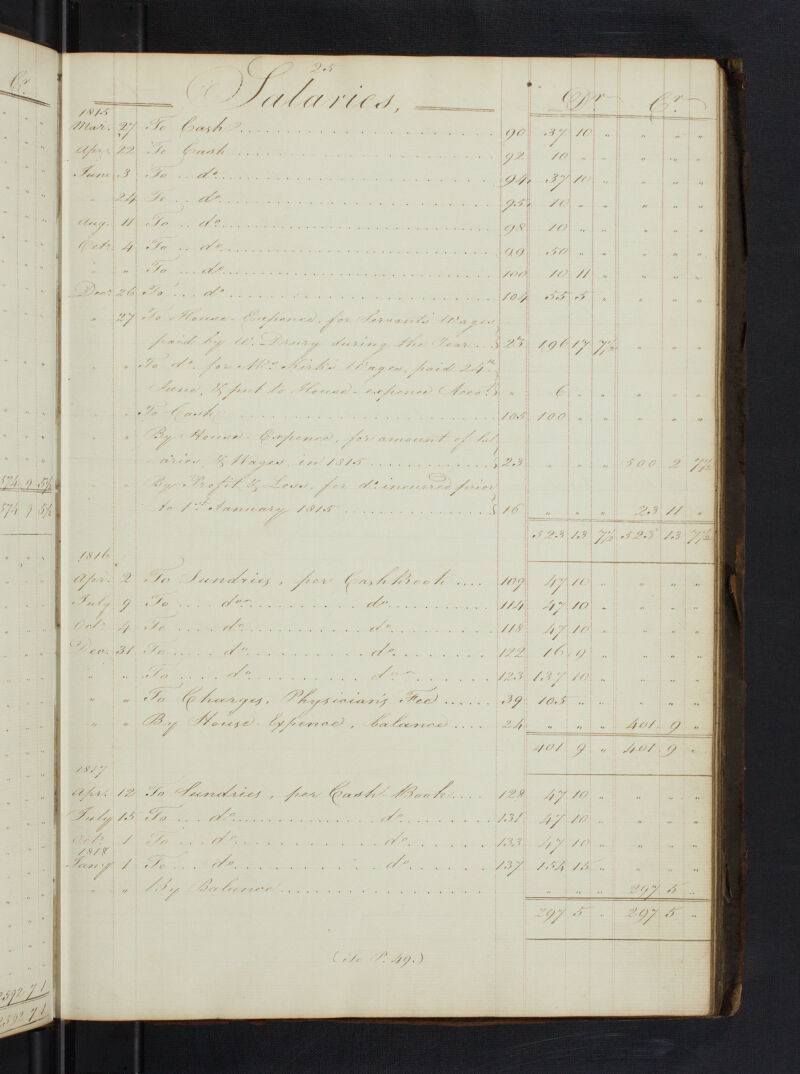 25
Salaries,
Dr Cr
1815
Mar. 27 To Cash 90 37 10 "
Apr. 22 To Cash 92 10 " "
June 3 To do 94 37 10 "
" 24 To do 95 10 " "
Aug. 11 To do 98 10 " "
Octr. 4 To do 99 50 " "
" " To do 100 10 11 "
Decr. 26 To do 104 55 5 "
" 27 To House-Expence, for Servants Wages
paid by W. Drury during the Year 23 196 17 7½
" " To do. for Mrs. Kirk's Wages, paid 24th
June, & put to House-expence Acct. " 6 " "
" " To Cash 105 100 " "
" " By House-Expence, for amount of Sal
aries, & Wages, in 1815 23 " " " 500 2 7½
" " By Profit & Loss, for do. incurred prior
to 1st January 1815 16 " " " 23 11 "
523 13 7½ 523 13 7½
1816
Apr. 2 To Sundries, per Cash Book 109 47 10 "
July 9 To do do 114 47 10 "
Octr. 4 To do do 118 47 10 "
Dec. 31 To do do 122 16 9 "
" " To do do 123 137 10 "
" " To Charges, Physician's Fee 39 105 " "
" " By House-Expence, balance 24 " " " 401 9 "
401 9 " 401 9 "
1817
Apr. 12 To Sundries, per Cash-Book 128 47 10 "
July 15 To do do 131 47 10 "
Octr. 1 To do do 133 47 10 "
1818
Jany 1 To do do 137 154 15 "
" " By Balance " " " 297 5 "
297 5 " 297 5 "
(To P. 49.)
Cr.
574 9 5½
574 9 5½
2592 7 1
2592 7 1